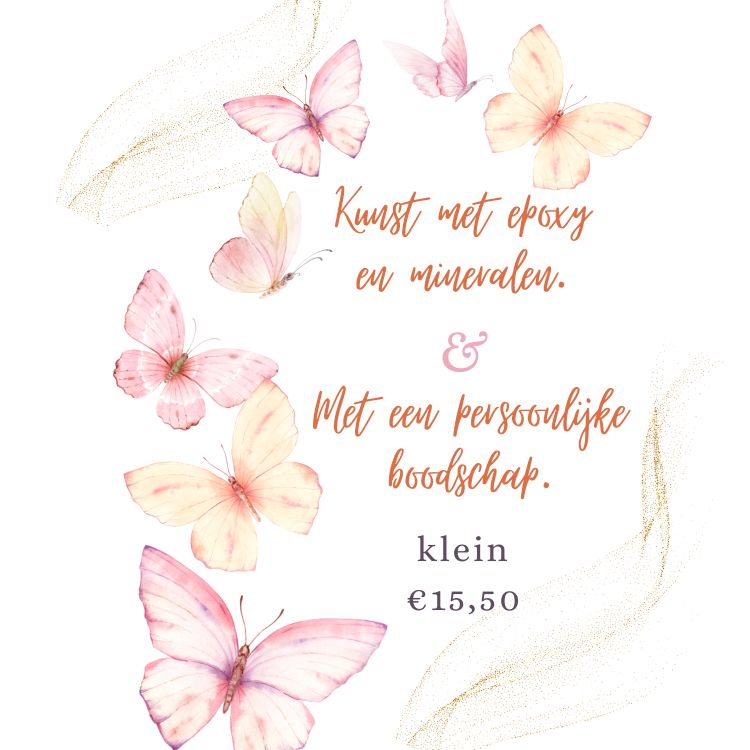 Kunst met epoxy
en mineralen.
&
Met een persoonlijke
boodschap.
klein
€15,50